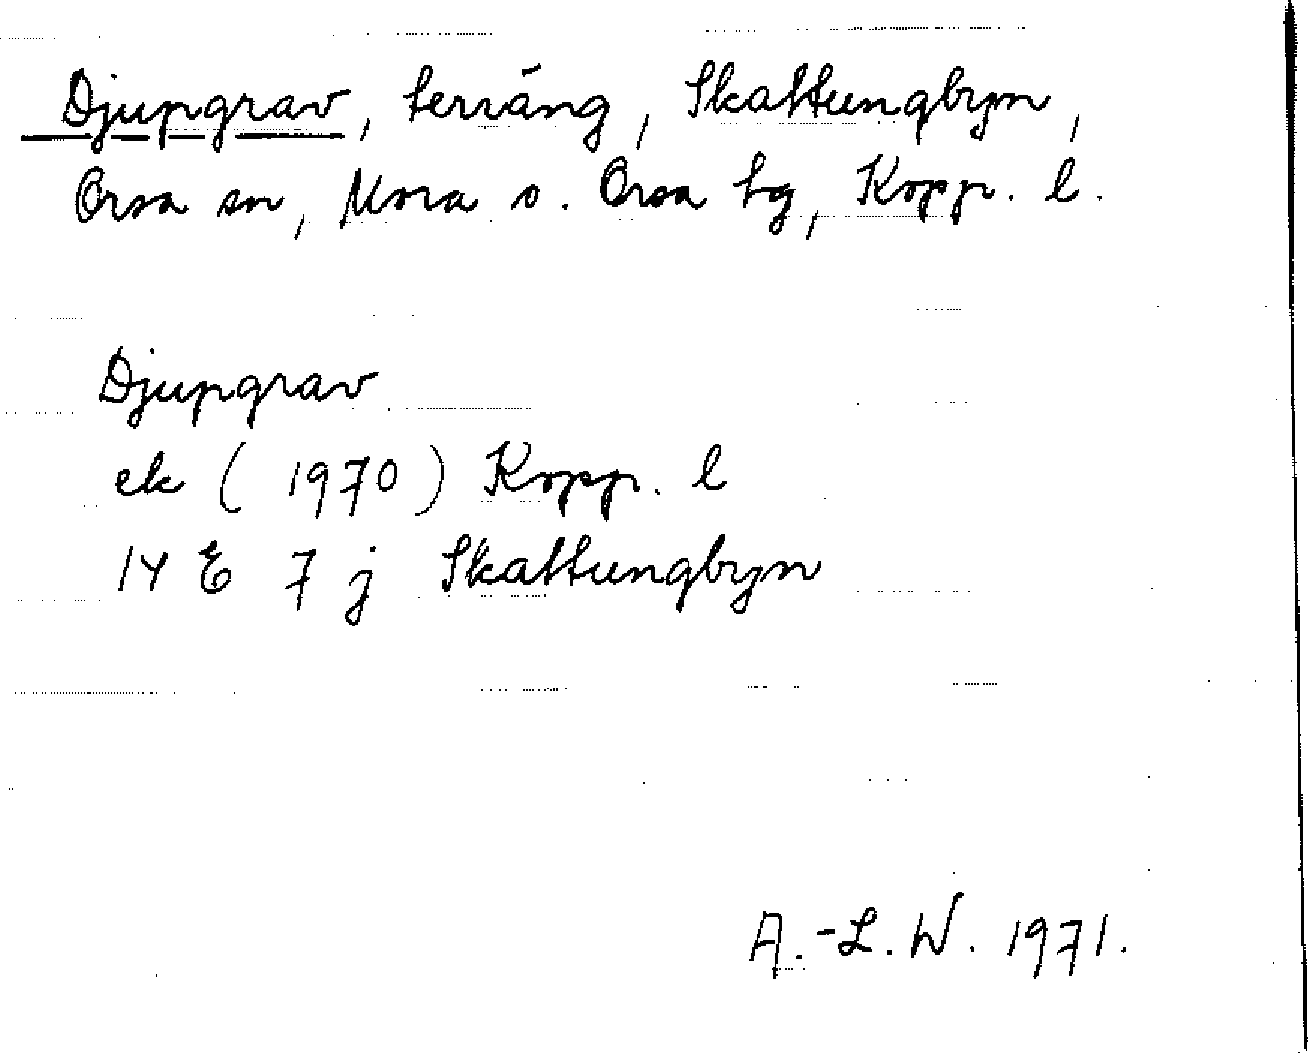 Djupgrav, terräng, Skattungbyn,
Orsa sn, Mora o. Orsa tg, Kopp. l.
Djupgrav
ek (1970) Kopp. l
14 E 7 j Skattungbyn
A.-L. W. 1971.